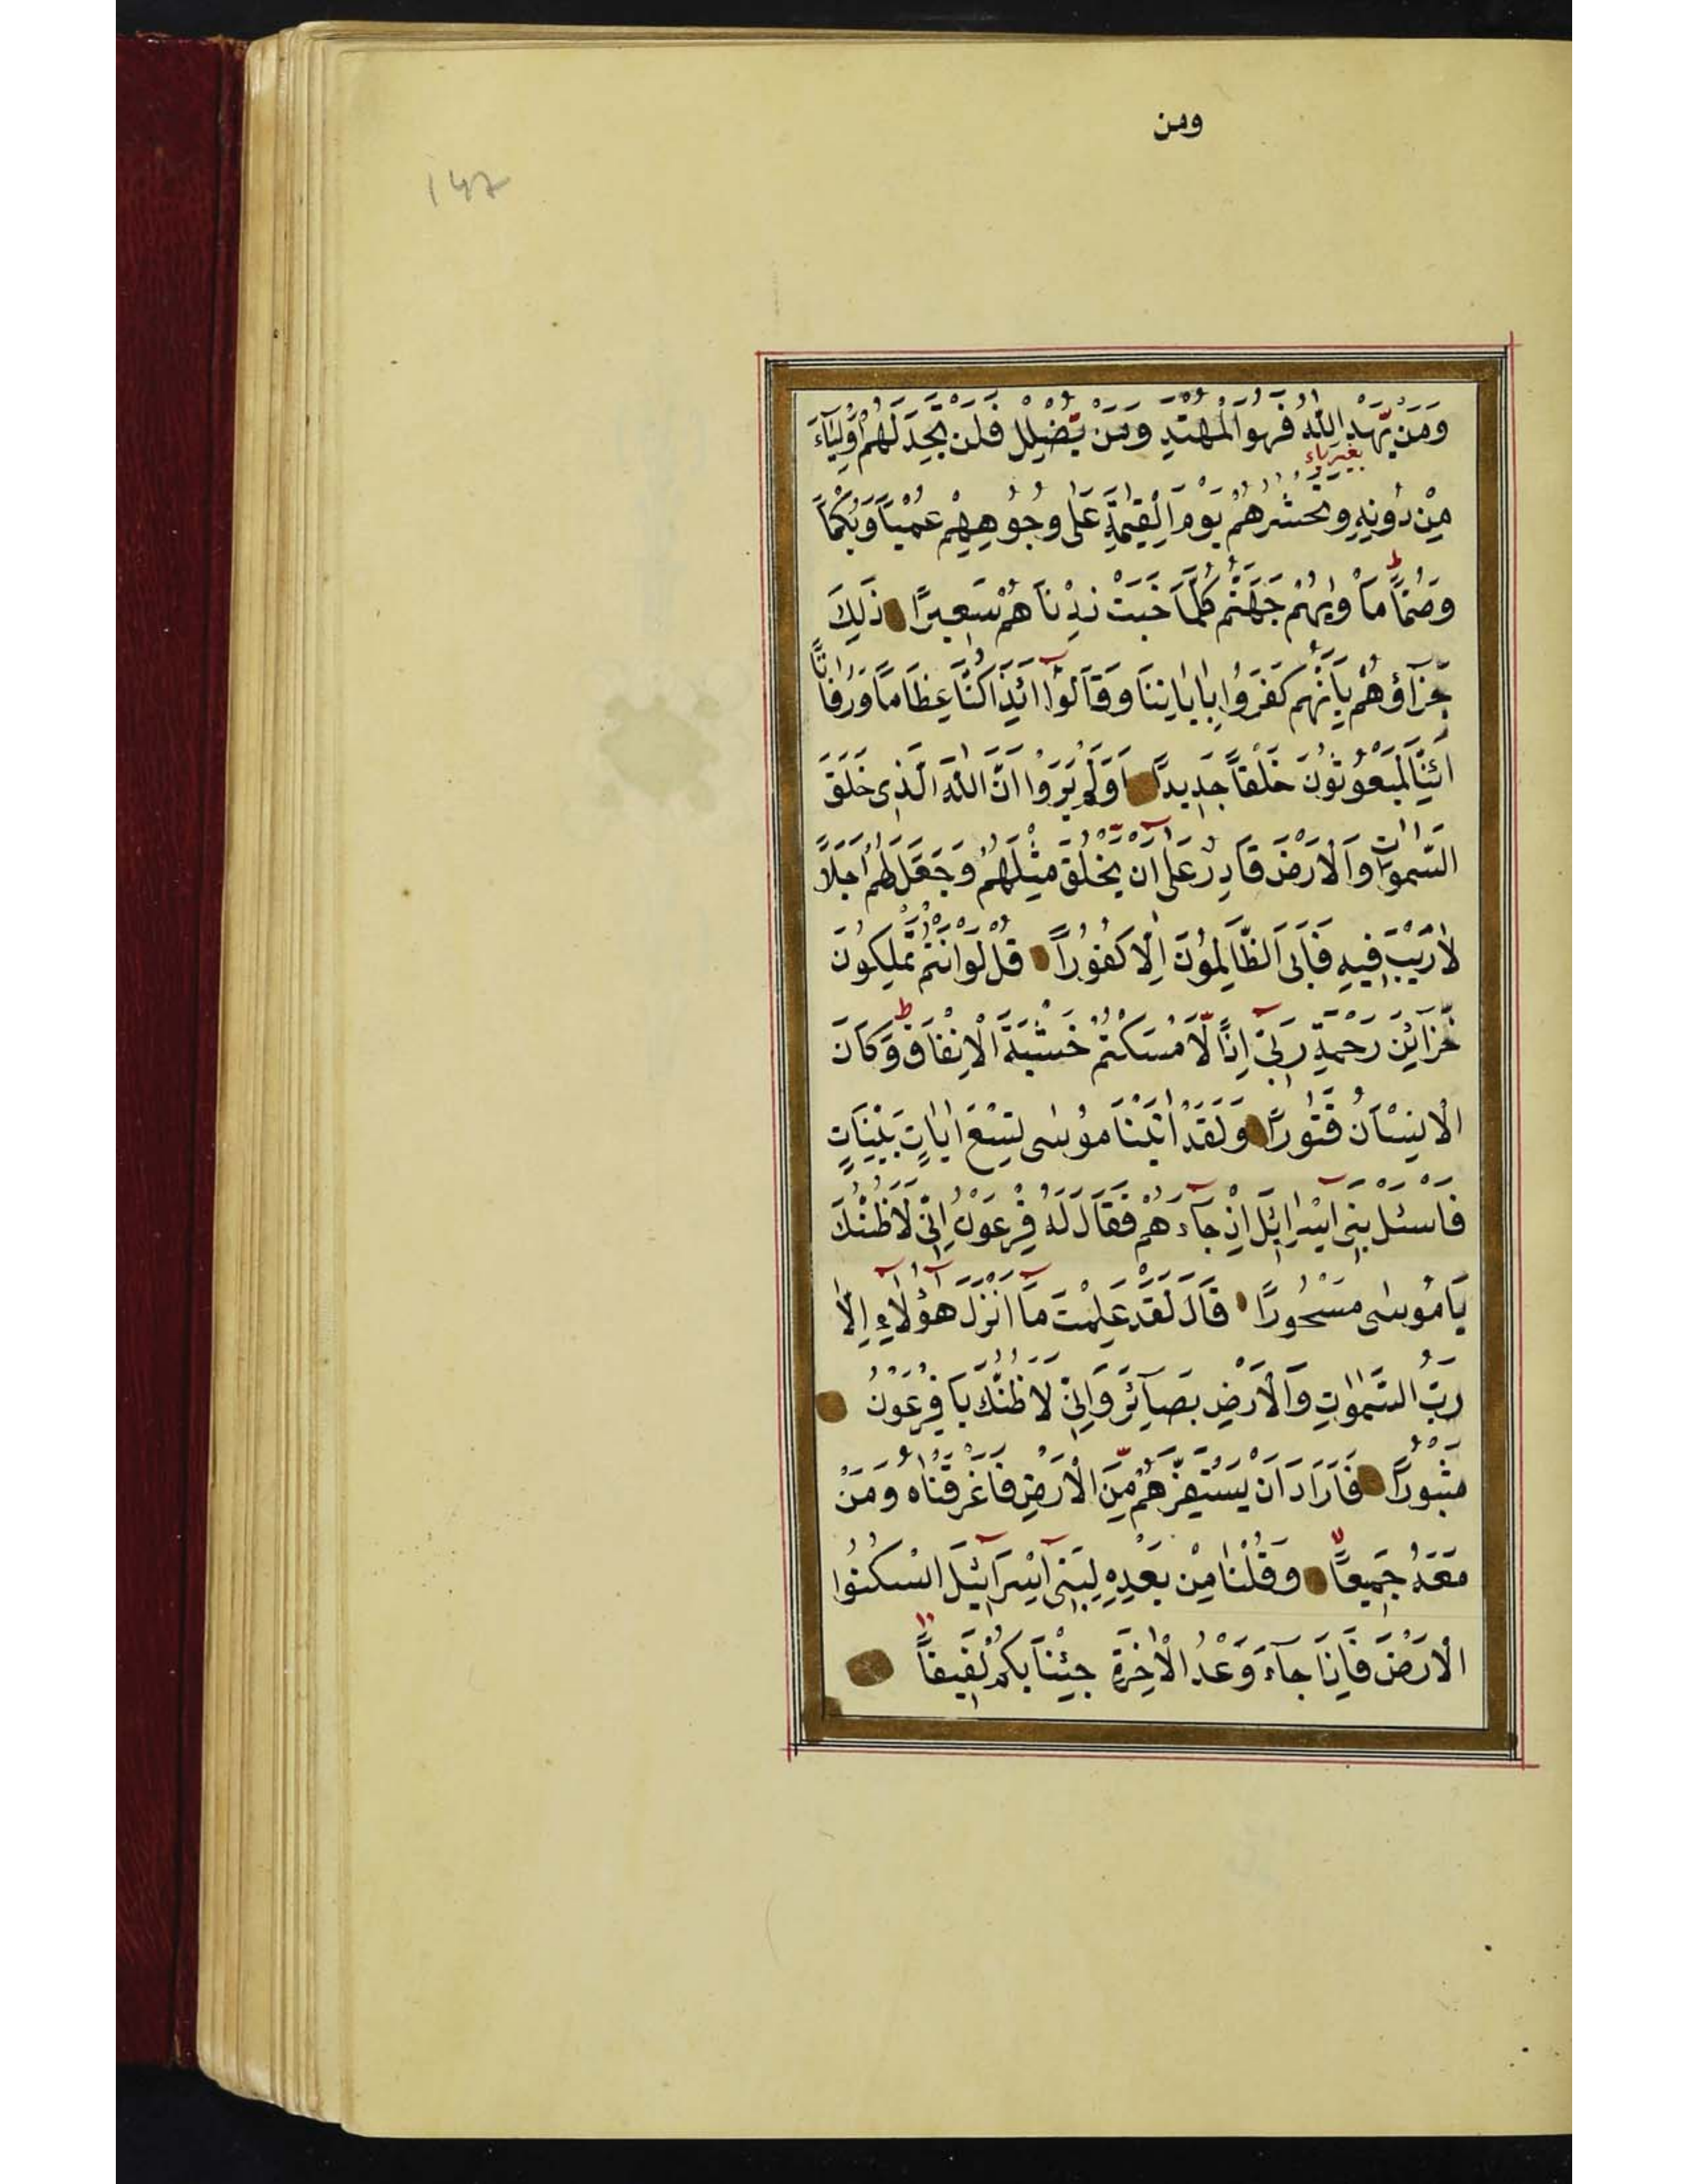 ومن
١٤٧
وَمَنْ يَّهْدِ اللّٰهُ فَهُوَ الْمُهْتَدِ وَمَنْ يُّضْلِلْ فَلَنْ تَجِدَ لَهُمْ اَوْلِيَآءَ
بغير ياء
مِنْ دُونِهٖ وَنَحْشُرُهُمْ يَوْمَ الْقِيٰمَةِ عَلٰى وُجُوهِهِمْ عُمْيًا وَبُكْمًا
وَصُمًّا ط مَاْوٰيهُمْ جَهَنَّمُ كُلَّمَا خَبَتْ زِدْنَاهُمْ سَعِيرًا ذٰلِكَ
جَزَآؤُهُمْ بِاَنَّهُمْ كَفَرُوا بِاٰيَاتِنَا وَقَالُوٓا اَئِذَا كُنَّا عِظَامًا وَرُفَاتًا
اَئِنَّا لَمَبْعُوثُونَ خَلْقًا جَدِيدًا اَوَلَمْ يَرَوْا اَنَّ اللّٰهَ الَّذِى خَلَقَ
السَّمٰوَاتِ وَالْاَرْضَ قَادِرٌ عَلٰٓى اَنْ يَّخْلُقَ مِثْلَهُمْ وَجَعَلَ لَهُمْ اَجَلًا
لَا رَيْبَ فِيهِ فَاَبَى الظَّالِمُونَ اِلَّا كُفُورًا قُلْ لَوْ اَنْتُمْ تَمْلِكُونَ
خَزَآئِنَ رَحْمَةِ رَبِّىٓ اِذًا لَّاَمْسَكْتُمْ خَشْيَةَ الْاِنْفَاقِ ط وَكَانَ
الْاِنْسَانُ قَتُورًا وَلَقَدْ اٰتَيْنَا مُوسٰى تِسْعَ اٰيَاتٍ بَيِّنَاتٍ
فَاسْئَلْ بَنِىٓ اِسْرَآئِلَ اِذْ جَآءَهُمْ فَقَالَ لَهُ فِرْعَوْنُ اِنِّى لَاَظُنُّكَ
يَا مُوسٰى مَسْحُورًا قَالَ لَقَدْ عَلِمْتَ مَآ اَنْزَلَ هٰٓؤُلَآءِ اِلَّا
رَبُّ السَّمٰوٰتِ وَالْاَرْضِ بَصَآئِرَ وَاِنِّى لَاَظُنُّكَ يَا فِرْعَوْنُ
مَثْبُورًا فَاَرَادَ اَنْ يَسْتَفِزَّهُمْ مِّنَ الْاَرْضِ فَاَغْرَقْنَاهُ وَمَنْ
مَعَهُ جَمِيعًا وَقُلْنَا مِنْ بَعْدِهٖ لِبَنِىٓ اِسْرَآئِيلَ اسْكُنُوا
الْاَرْضَ فَاِذَا جَآءَ وَعْدُ الْاٰخِرَةِ جِئْنَا بِكُمْ لَفِيفًا